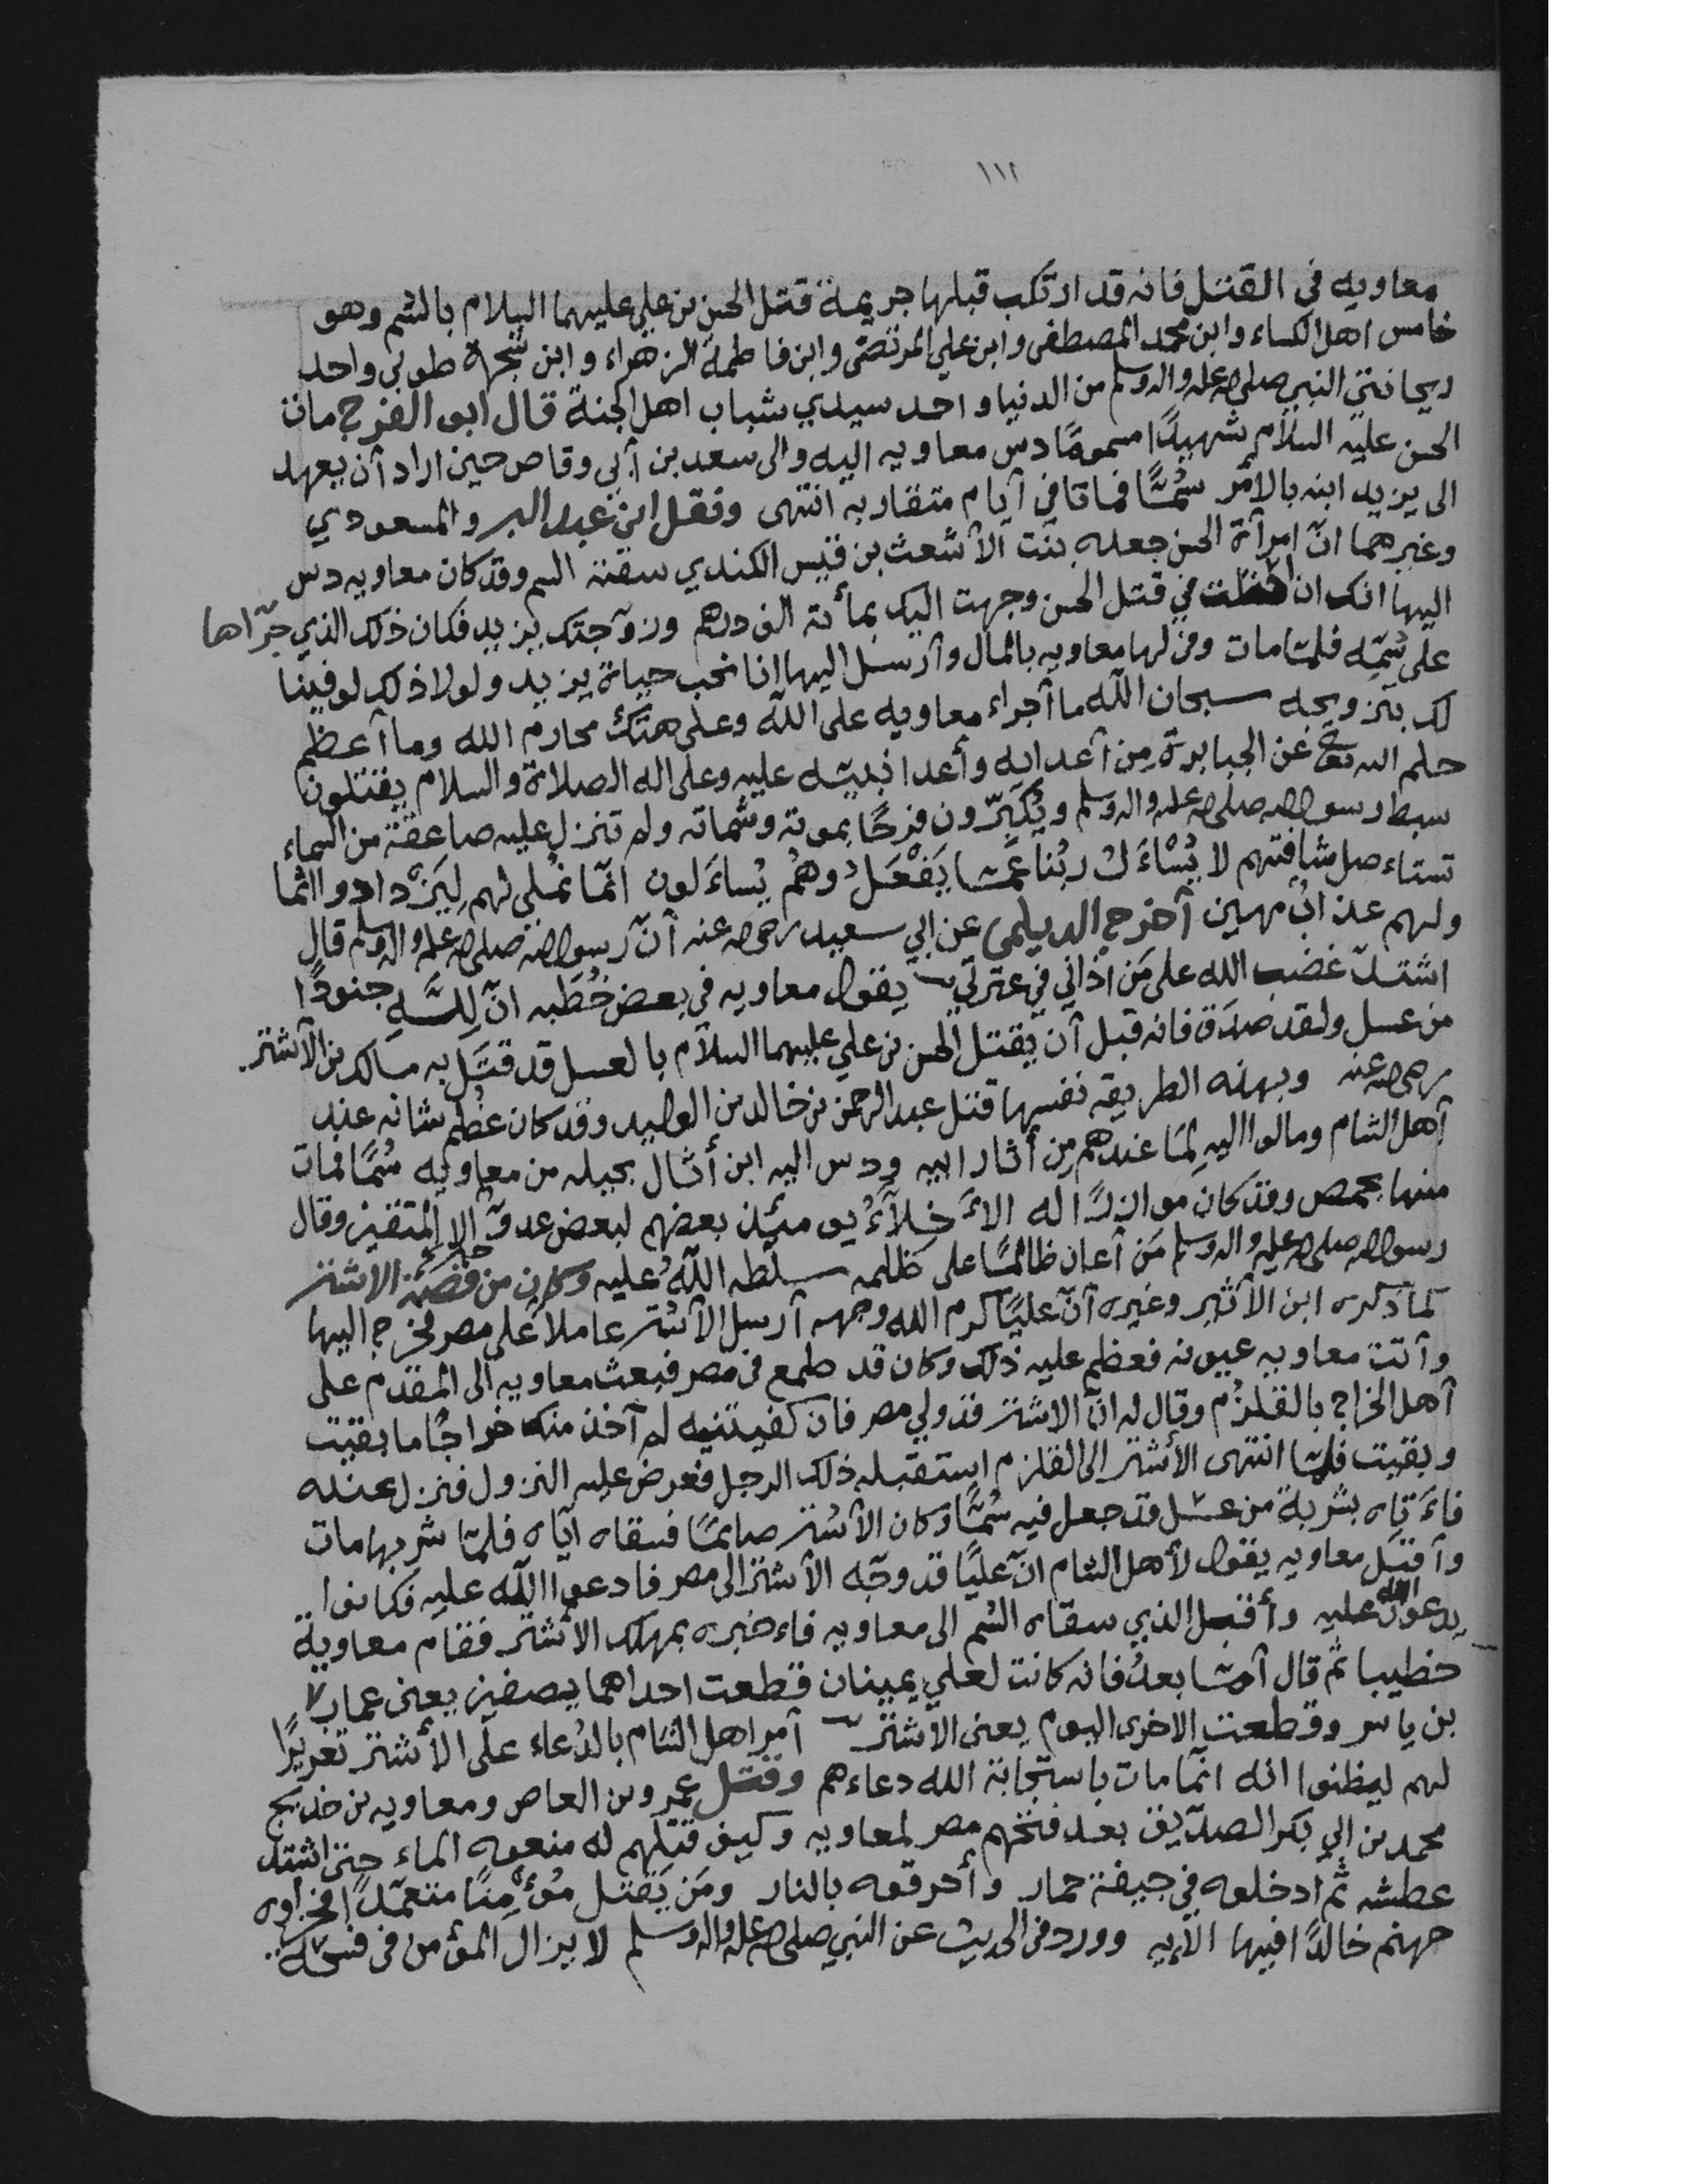 ١١٢
معاويه في القتل فانه قد ارتكب قبلها جريمة قتل الحسن بن علي عليهما السلام بالسّم وهو
خامس اهل الكساء وابن محمد المصطفى وابن علي المرتضى وابن فاطمة الزهراء وابن شجرة طوبى واحد
ريحانتي النبي صلى الله عليه واله وسلم من الدنيا واحد سيدي شباب اهل الجنة قال ابو الفرج مات
الحسن عليه السلام شهيدًا مسمومًا دس معاويه اليه والى سعد بن أبي وقاص حين اراد أن يعهد
الى يزيد ابنه بالأمر سُمًّا فماتا في أيام متقاربه انتهى ونقل ابن عبد البر والمسعودي
وغيرهما انّ امرأة الحسن جعده بنت الأشعث بن قيس الكندي سقته السم وقد كان معاويه دس
اليها انك ان في قتل الحسن وجهت اليك بمأئة الف درهم وزوّجتك يزيد فكان ذلك الذي جرّاها
على سُمّه فلمّا مات وفى لها معاويه بالمال وأرسل اليها انا نحب حياة يزيد ولولا ذلك لوفينا
لك بتزويجه سبحان الله ما أجراء معاويه على الله وعلى هتك محارم الله وما أعظم
حلم الله تعالى عن الجبابرة مِن أعدايه وأعدا نبيّه عليه وعلى اله الصلاة والسلام يقتلون
سبط رسول الله صلى الله عليه واله وسلم ويُكبّرون فرحًا بموته وشماته ولم تنزل عليه صاعقة من السماء
تستاءصل شافتهم لا يُسْاءَلُ ربُنا عَمّا يَفْعَلُ وهُم يُساءَلون انمّا نُملي لهم لِيَزْدادوا اثما
ولهم عذابٌ مهين أخرج الديلمي عن ابي سعيد رضى الله عنه أنّ رسول الله صلى الله عليه واله وسلم قال
اشتدّ غضب الله على مَن اذاني في عترتي يقول معاويه في بعض خُطَبِه انّ لِلّهِ جنودًا
من عسل ولقد صدَق فانه قبل أن يقتل الحسن بن علي عليهما السلام بالعسل قد قتَل به مالك بن الأشتر
رضى الله عنه وبهذه الطريقه نفسها قتل عبد الرحمن بن خالد بن الوليد وقد كان عظُم شانه عند
أهل الشام ومالوا اليهِ لمَا عندهم مِن أثار ابيه ودس اليه ابن أثال بحيله من معاويه سُمًّا فمات
منها بحمص وقد كان موازرًا له الأخلاّءُ يومئذ بعضهم لبعض عدوٌ الا المتقين وقال
رسول الله صلى الله عليه واله وسلم مَن أعان ظالمًا على ظلمه سلّطه اللهُ عليه وكان من قصّة الاشتر
كما ذكره ابن الأثير وغيره أنّ عليًا كرم الله وجهه أرسل الأشتر عاملاً على مصر فخرج اليها
وأتت معاويه عيونه فعظم عليه ذلك وكان قد طمع في مصر فبعث معاويه الى المقدم على
أهل الخراج بالقلزُم وقال له انّ الاشتر قد ولي مصر فان كفيتنيه لم آخذ منك خراجًا ما بقيت
وبقيت فلمّا انتهى الأشتر الى القلزم استقبله ذلك الرجل فعرض عليه النزول فنزل عنده
فاءَتاه بشربة من عسل قد جعل فيه سُمًّا وكان الأشتر صائمًا فسقاه اياه فلمّا شربها مات
وأقبَل معاويه يقول لأهل الشام انّ عليًا قد وجّه الأشتر الى مصر فادعوا الله عليه فكانوا
يدعون الله عليه وأقبل الذي سقاه السُم الى معاويه فاءخبره بمهلك الأشتر فقام معاوية
خطيبا ثم قال أمّا بعدُ فانه كانت لعلي يمينان قطعت احداهما بصفين يعنى عمار
بن ياسر وقطعت الاخرى اليوم يعنى الأشتر أمر اهل الشام بالدُعاء على الأشتر تغريرًا
لهم ليظنوا انه انمّا مات باستجابة الله دعاءهم وقتل عمرو بن العاص ومعاويه بن خديج
محمد بن ابي بكر الصدّيق بعد فتحهم مصر لمعاويه وكيف قتلهم له منعوه الماء حتى اشتد
عطشه ثم ادخلوه في جيفة حمار وأحرقوه بالنار ومَن يَقتل مُؤمِنًا متعمّدًا فجزاوه
جهنم خالدًا فيها الآيه وورد في الحديث عن النبي صلى الله عليه واله وسلم لا يزال المؤمن في فسحة